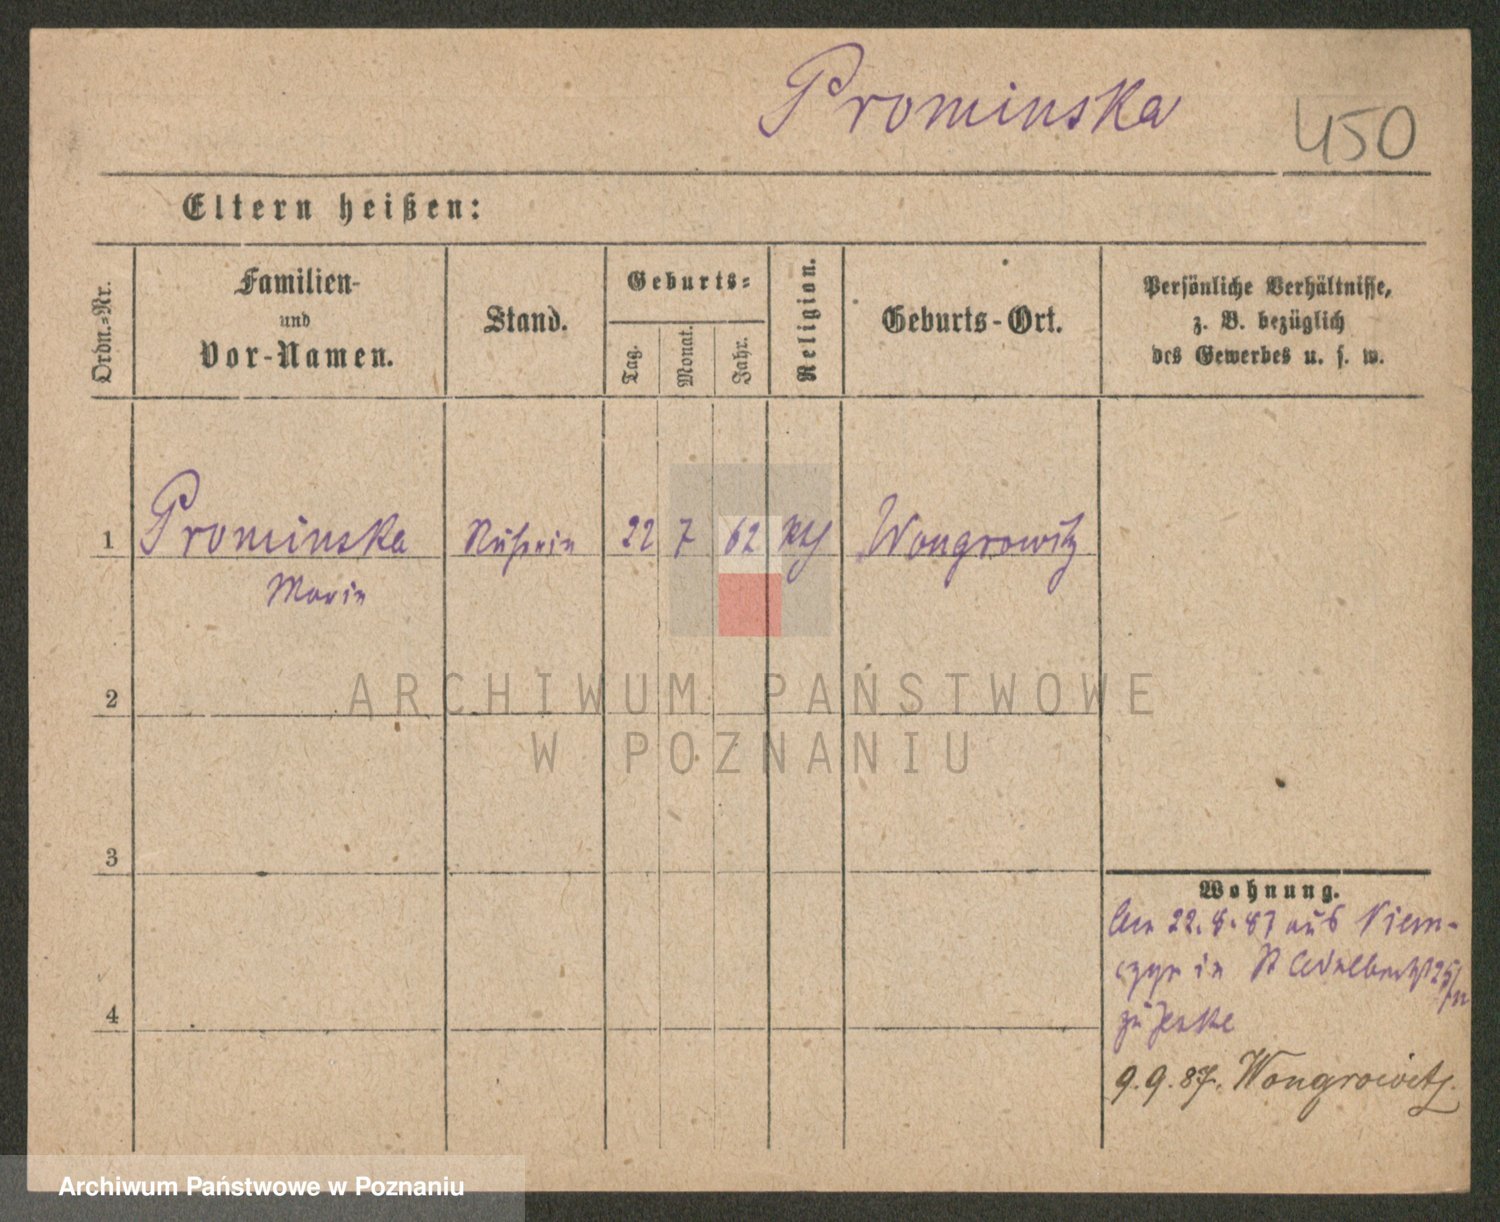 Prominska
450
Eltern heißen:
Ordn.-Nr.
Familien-
und
Vor-Namen.
Stand.
Geburts-
Tag.
Monat.
Jahr.
Religion.
Geburts-Ort.
Persönliche Verhältnisse,
z. B. bezüglich
des Gewerbes u. s. w.
1
Prominska
Marie
22
7
62
Kth
Wongrowitz
2
3
4
ARCHIWUM PAŃSTWOWE
W POZNANIU
Wohnung.
22.8.87 aus Niem-
in St Adalbertst 25
zu Jeske
9.9.87. Wongrowitz.
Archiwum Państwowe w Poznaniu